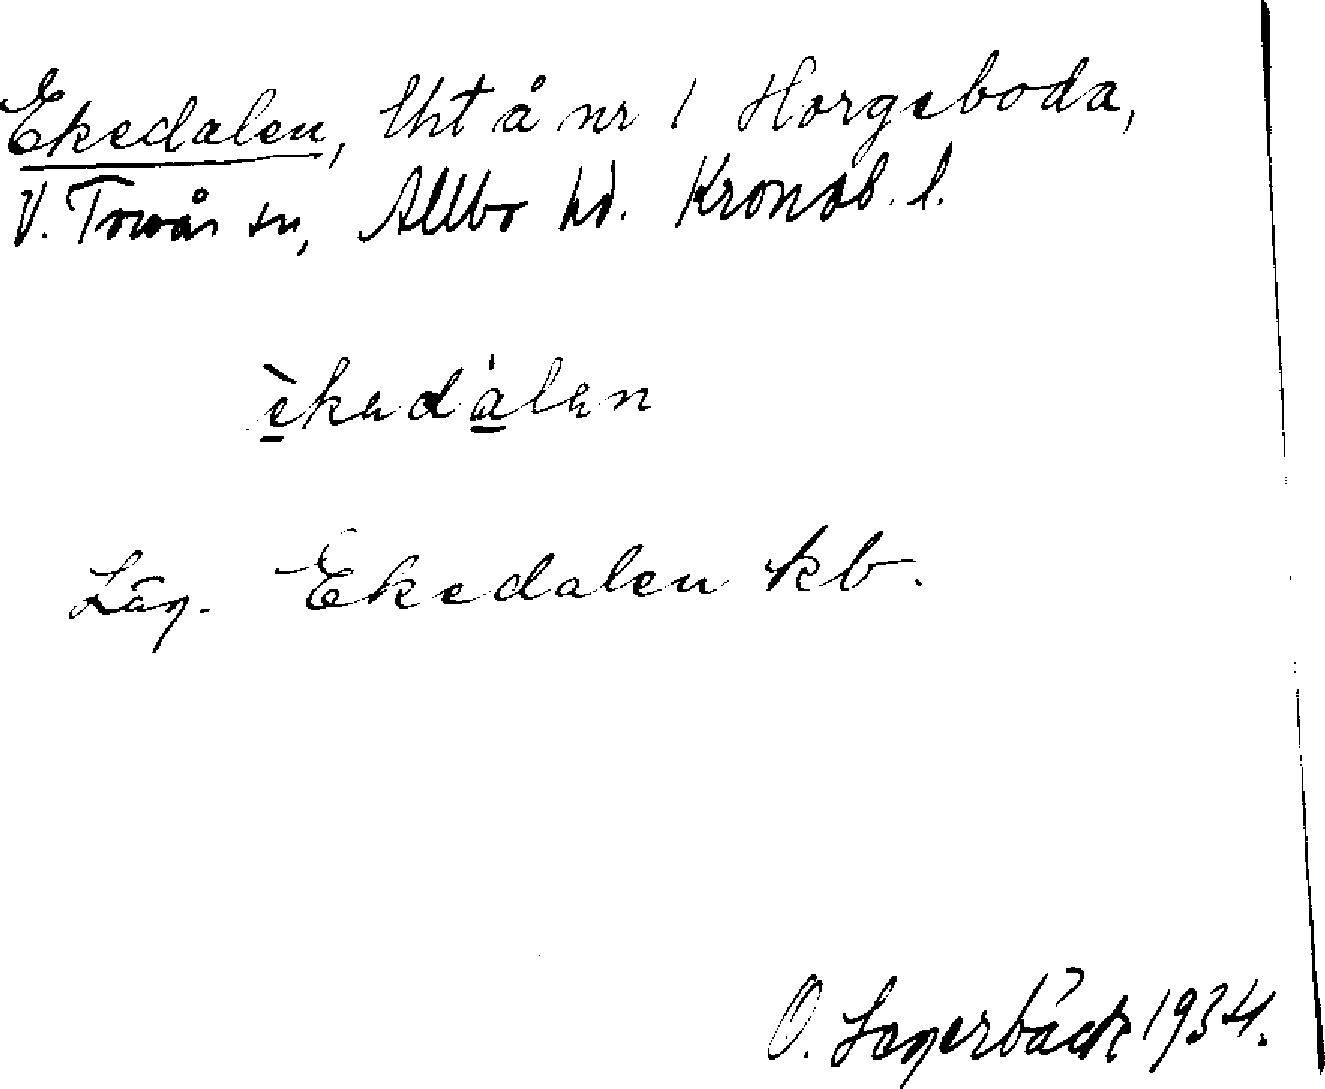 Ekedalen, lht å nr 1 Horgeboda,
V. Torsås sn, Allbo hd. Kronob. l.
èkedálen
Läg. Ekedalen kb.
O. Lagerbäck 1934.